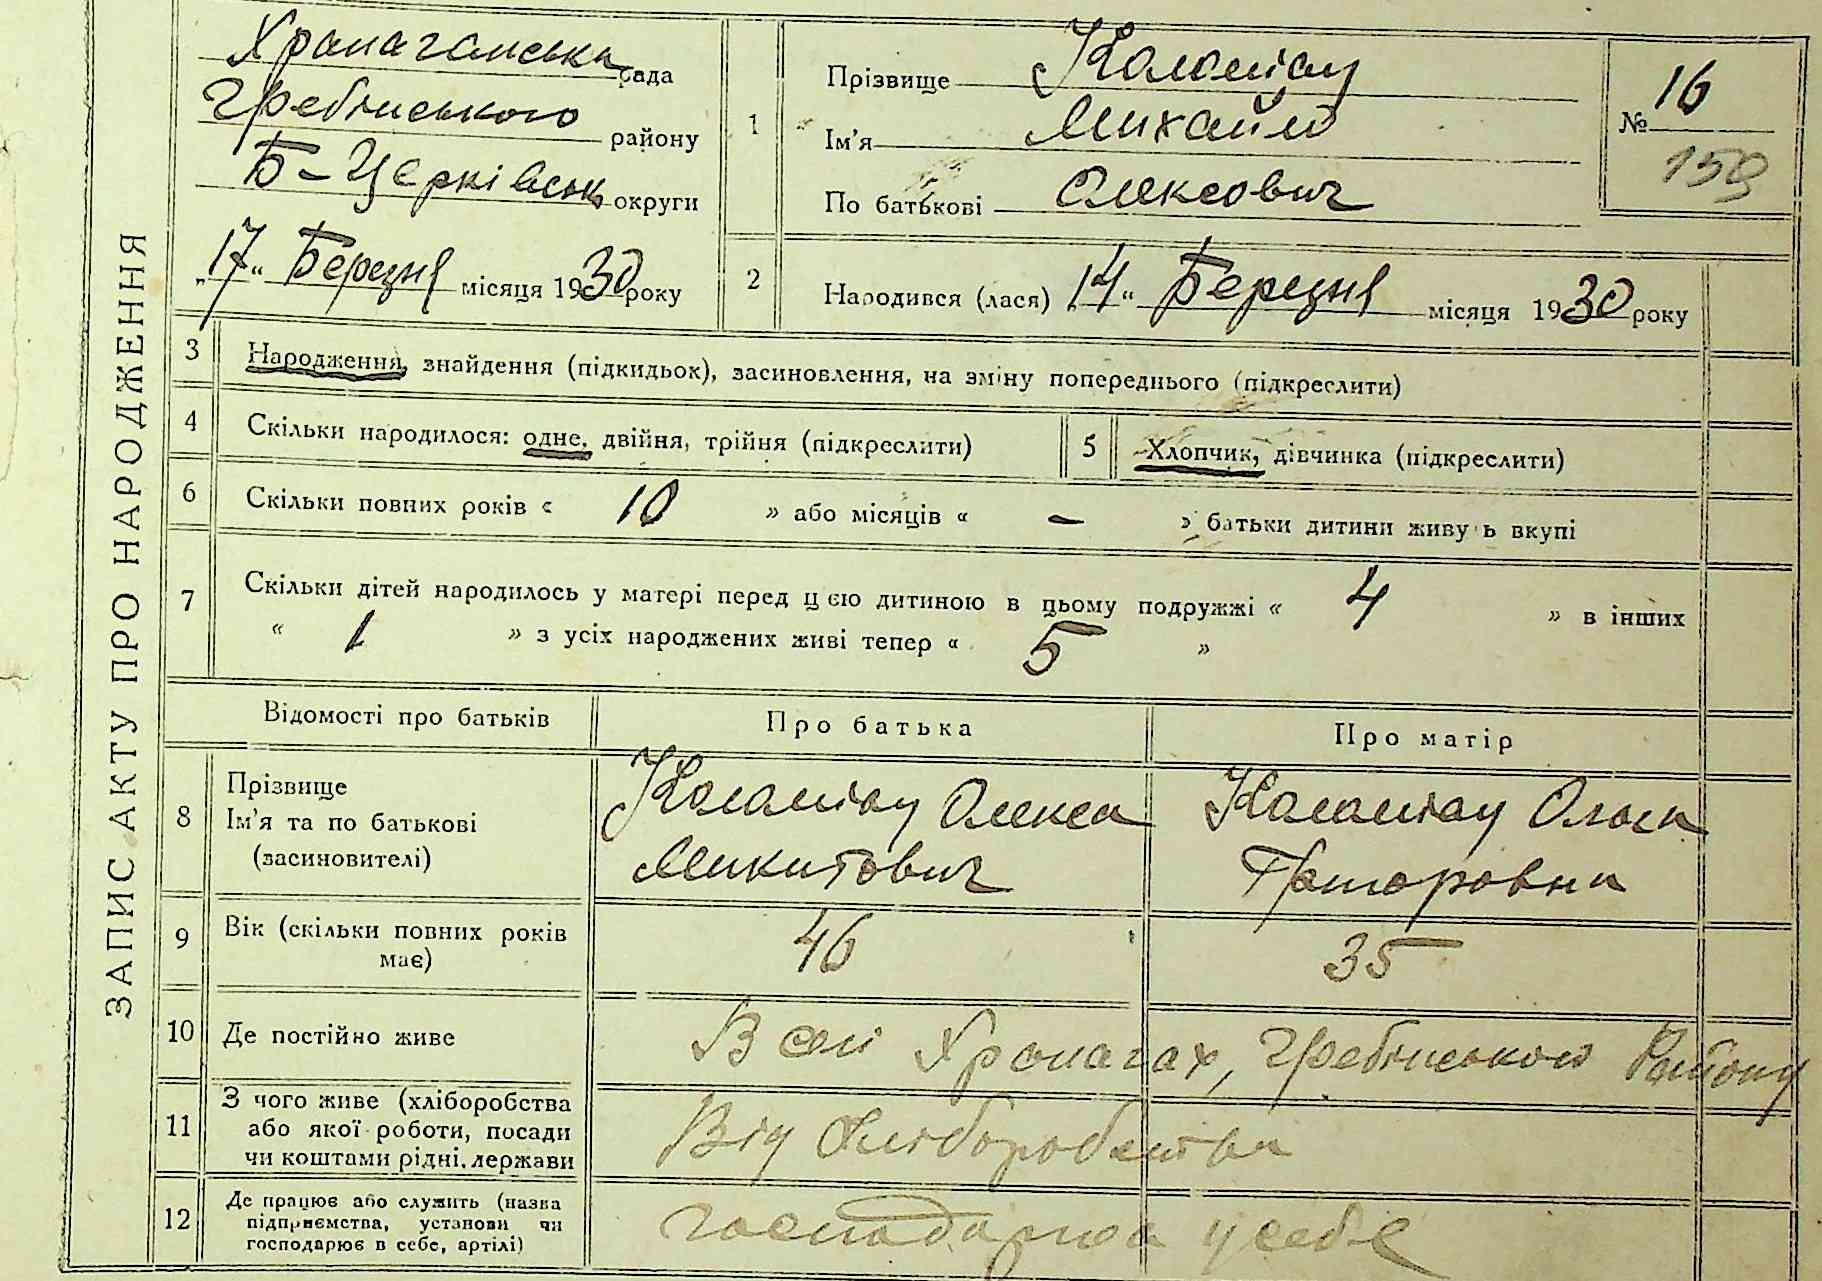 ЗАПИС АКТУ ПРО НАРОДЖЕННЯ
Храпаганська рада
Гребінського району
Б-Церківськ округи
„17“ Березня місяця 1930 року
1
Прізвище Коломієц
Ім'я Михайло
По батькові Олексович
№ 16
159
2
Народився (лася) „14“ Березня місяця 1930 року
3 Народження, знайдення (підкидьок), засиновлення, на зміну попереднього (підкреслити)
4 Скільки народилося: одне, двійня, трійня (підкреслити)
5 Хлопчик, дівчинка (підкреслити)
6 Скільки повних років « 10 » або місяців « – » батьки дитини живуть вкупі
7 Скільки дітей народилось у матері перед цією дитиною в цьому подружжі « 4 » в інших
« 1 » з усіх народжених живі тепер « 5 »
Відомості про батьків Про батька Про матір
8 Прізвище
Ім'я та по батькові
(засиновителі)
Коломієц Олекса
Микитович
Коломієц Ольга
9 Вік (скільки повних років
має)
46
35
10 Де постійно живе
В селі Храпачах, Гребінського Району
11 З чого живе (хліборобства
або якої роботи, посади
чи коштами рідні, держави
Від Хліборобства
12 Де працює або служить (назва
підприємства, установи чи
господарює в себе, артілі)
господарює у себе